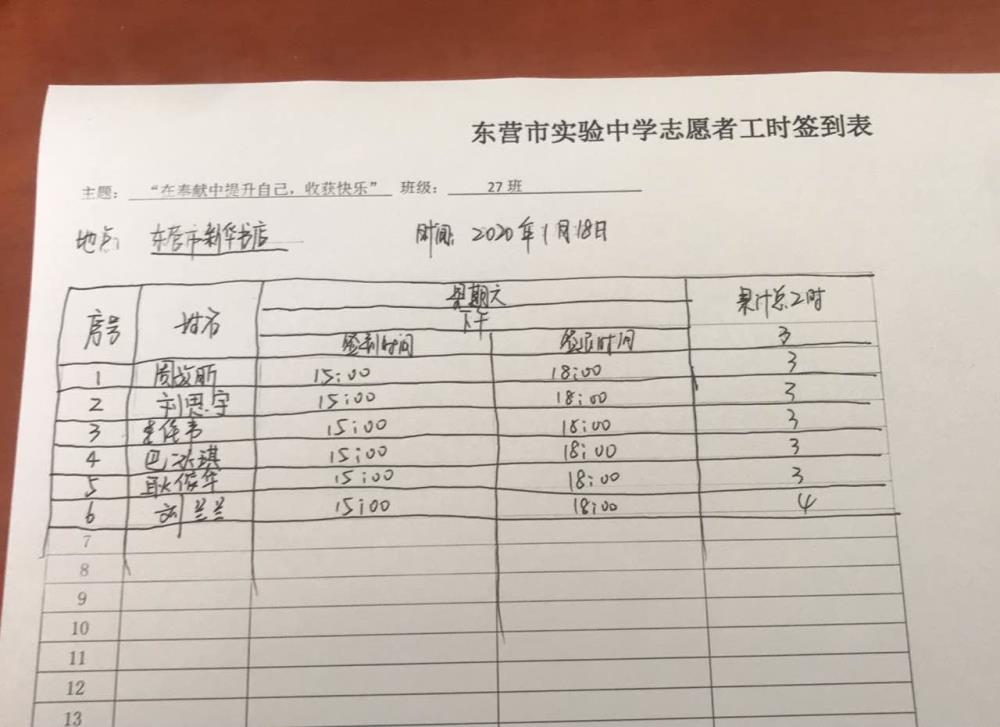 东营市实验中学志愿者工时签到表
主题：“在奉献中提升自己，收获快乐” 班级： 27 班
地点: 东营市新华书店 时间: 2020年1月18日
序号 姓名 星期六 累计总工时
下午
签到时间 签退时间 3
1 15:00 18:00 3
2 刘思宇 15:00 18:00 3
3 15:00 18:00 3
4 巴冰琪 15:00 18:00 3
5 耿俊华 15:00 18:00 3
6 刘兰兰 15:00 18:00 4
7
8
9
10
11
12
13